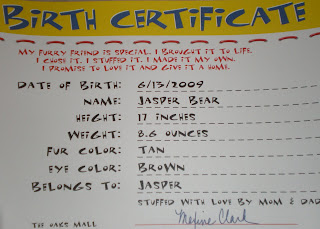 BIRTH CERTIFICATE
MY FURRY FRIEND IS SPECIAL. I BROUGHT IT TO LIFE.
I CHOSE IT. I STUFFED IT. I MADE IT MY OWN.
I PROMISE TO LOVE IT AND GIVE IT A HOME.
DATE OF BIRTH: 6/13/2009
NAME: JASPER BEAR
HEIGHT: 17 INCHES
WEIGHT: 8.6 OUNCES
FUR COLOR: TAN
EYE COLOR: BROWN
BELONGS TO: JASPER
STUFFED WITH LOVE BY MOM & DAD
THE OAKS MALL Maxine Clark